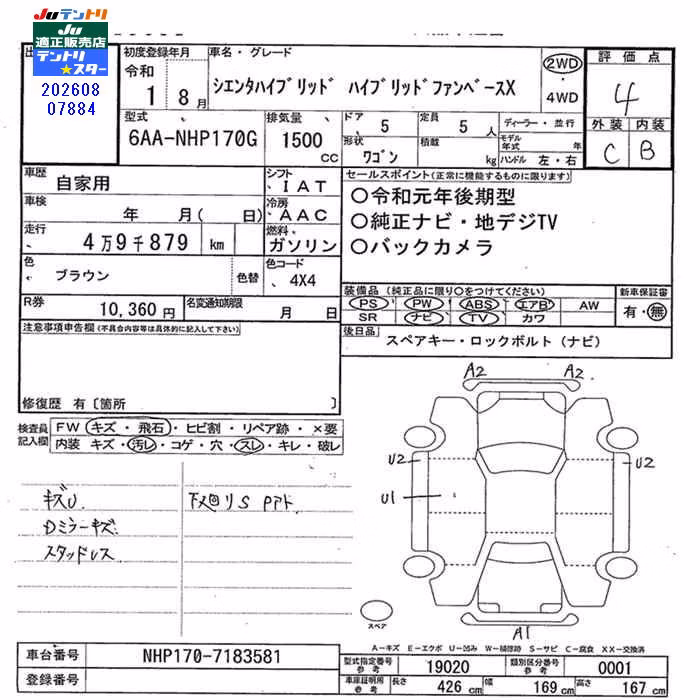 Juテントリ
Ju
適正販売店
テントリ
スター
202608
07884
初度登録年月
令和
1 8月
車名・グレード
シエンタハイブリッド ハイブリッドファンベースX
2WD
・
4WD
評価点
4
外装 内装
C B
型式
6AA-NHP170G
排気量
1500 CC
ドア 5
定員 5 人
形状 ワゴン
積載 kg
ディーラー・並行
モデル年式 年
ハンドル 左・右
車歴 自家用
シフト 、IAT
車検 年 月( 日)
冷房 、AAC
走行
、 4万9千879 km
燃料 ガソリン
色
、 ブラウン 色替
色コード 、4X4
R券 10,360円
名変通知期限 月 日
セールスポイント(正常に機能するものに限ります)
○令和元年後期型
○純正ナビ・地デジTV
○バックカメラ
装備品 (純正品に限り○をつけてください)
PS PW ABS エアB AW
SR ナビ TV カワ
新車保証書
有・無
後日品
スペアキー・ロックボルト(ナビ)
注意事項申告欄(不具合内容等は具体的に記入して下さい)
修復歴 有〔箇所 〕
検査員記入欄
FW キズ・飛石・ヒビ割・リペア跡・×要
内装 キズ・汚レ・コゲ・穴・スレ・キレ・破レ
キズU
Dミラーキズ
スタッドレス
下廻リS Pアト
A2 A2
U2 U2
U1
A1
スペア
A-キズ E-エクボ U-凹み W-補修跡 S-サビ C-腐食 XX-交換済
車台番号 NHP170-7183581
登録番号
型式指定番号参考 19020
類別区分番号参考 0001
車庫証明用参考 長さ 426 cm 幅 169 cm 高さ 167 cm